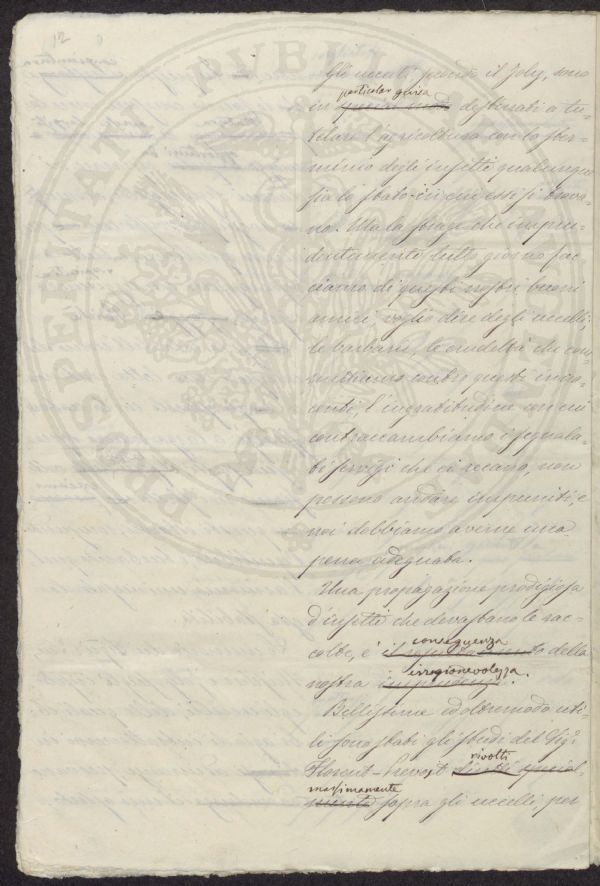 12
Gli uccelli, pensa il Joly, sono
particolar guisa
in special modo destinati a tu-
telare l'agricoltura con lo ster-
minio degli insetti qualunque
sia lo stato in cui essi si trova-
no. Ma la strage che impru-
dentemente tutto giorno fac-
ciamo di questi nostri buoni
amici, voglio dire degli uccelli,
le barbarie, le crudeltà che com-
mettiamo contro questi inno-
centi, l'ingratitudine con cui
contraccambiamo i segnala-
ti servigi che ci recano, non
possono andare impuniti, e
noi dobbiamo averne una
pena adeguata.
Una propagazione prodigiosa
d'insetti che devastano le rac-
colte, è conseguenza della
nostra irragionevolezza.
Bellissime ed oltremodo uti-
li sono stati gli studi del Sigr
Florent-Prevost rivolti
massimamente
sopra gli uccelli, per
PROSPERITATI PUBLICAE